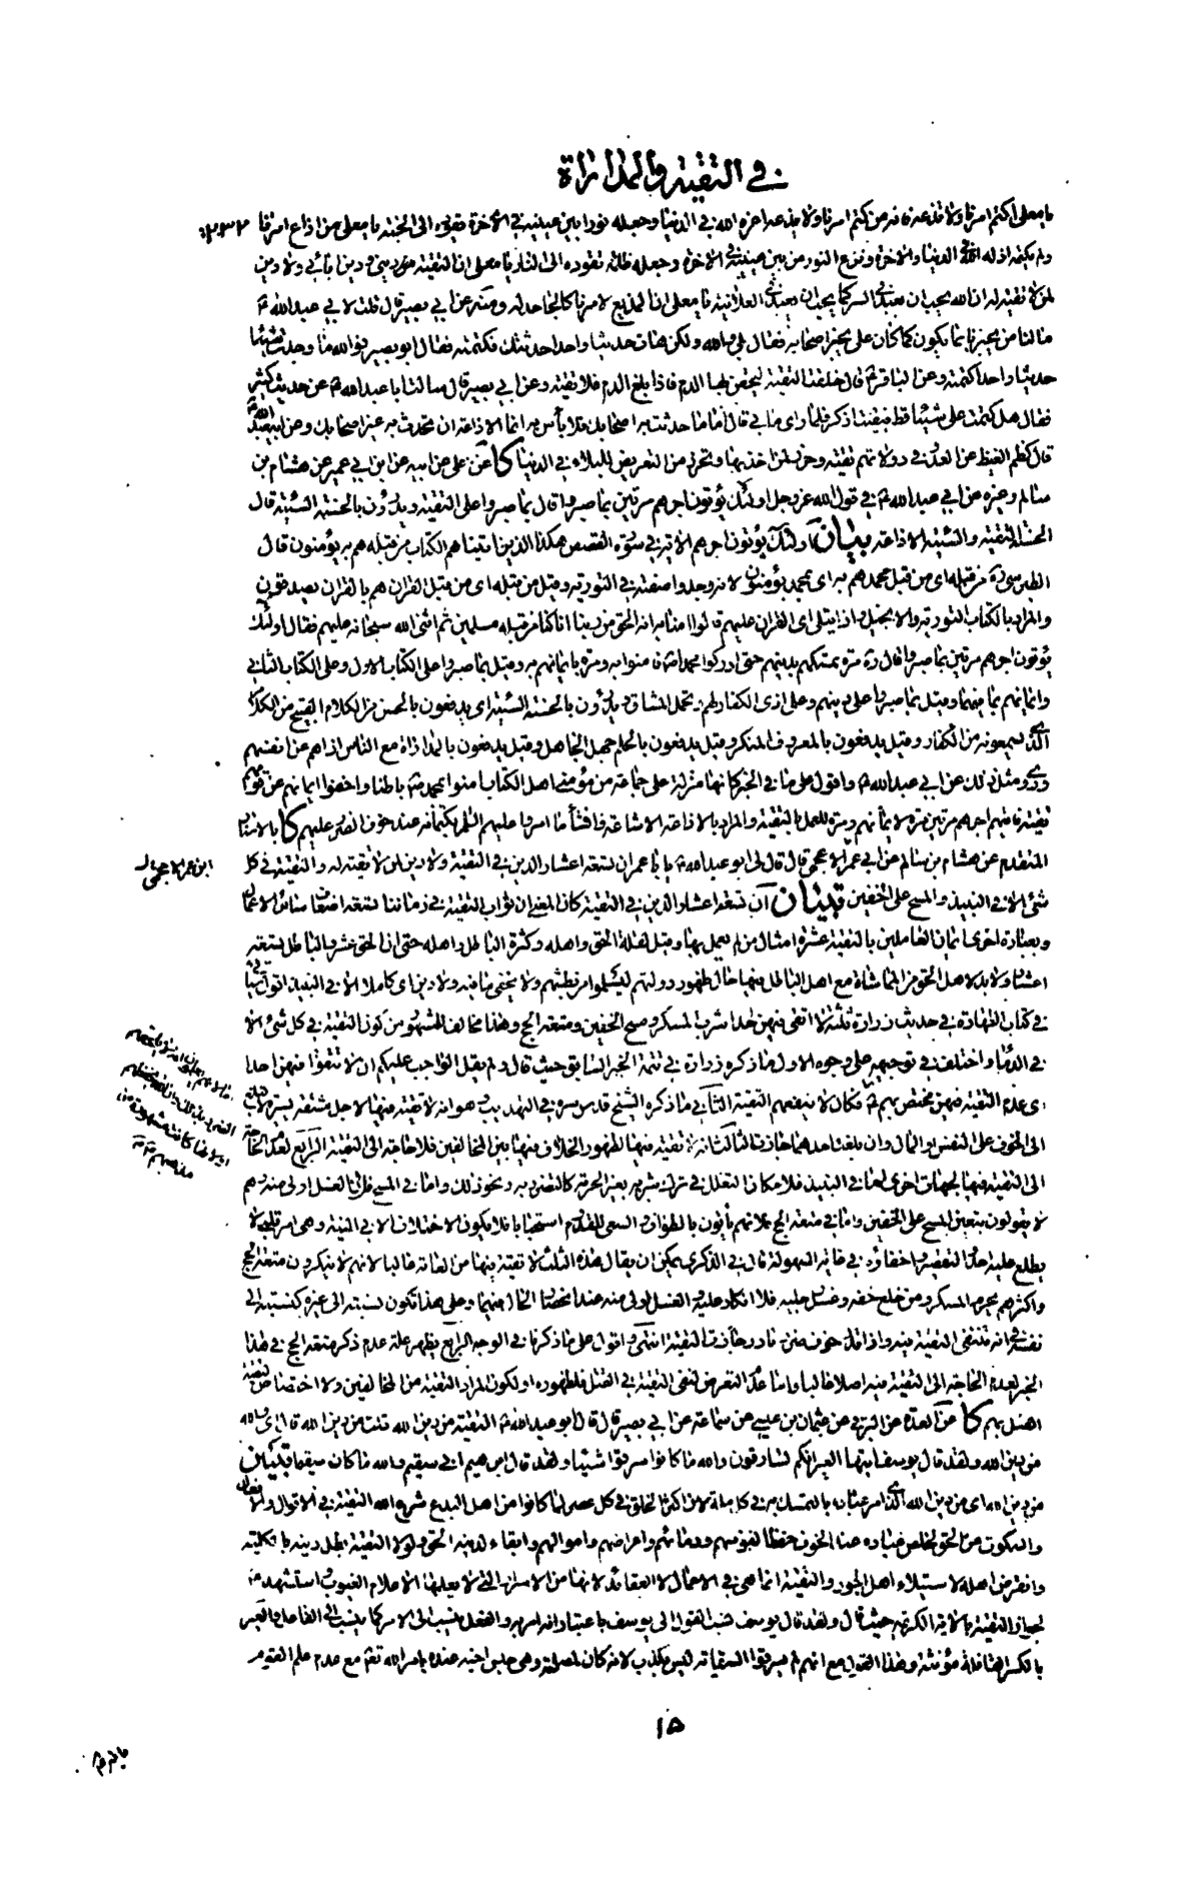 في التقية والمداراة
يا معلى اكتم امرنا ولا تذعه فانه من كتم امرنا ولا يذيعه اعزه الله في الدنيا وجعله نورا بين عينيه في الآخرة يقوده الى الجنة يا معلى من اذاع امرنا
ولم يكتمه اذله الله في الدنيا والآخرة ونزع النور من بين عينيه في الآخرة وجعله ظلمة تقوده الى النار يا معلى ان التقية من ديني ودين آبائي ولا دين
لمن لا تقية له ان الله يحب ان يعبد في السر كما يحب ان يعبد في العلانية يا معلى ان المذيع لامرنا كالجاحد له ومنه عن ابي بصير قال قلت لابي عبد الله ع
ما لنا من يخبرنا بما يكون كما كان علي يخبر اصحابه فقال بلى والله ولكن هات حديثا واحدا حدثتك فكتمته فقال ابو بصير فوالله ما وجدت
حديثا واحدا كتمته وعن قال خلقت التقية ليحقن بها الدم فاذا بلغ الدم فلا تقية وعن ابي بصير قال سالت ابا عبد الله ع عن حديث كثير
فقال هل كتمت علي شيئا قط فبقيت اذكر فلما راى ما بي قال اما ما حدثت به اصحابك فلا بأس به انما الاذاعة ان تحدث به غير اصحابك وعن
قال كظم الغيظ عن العدو في دولاتهم تقية وحزم لمن اخذ بها وتحرز من التعريض للبلاء في الدنيا كا عن علي عن ابيه عن ابن ابي عمير عن هشام بن
سالم وغيره عن ابي عبد الله ع في قول الله عز وجل اولئك يؤتون اجرهم مرتين بما صبروا قال بما صبروا على التقية ويدرؤن بالحسنة السيئة قال
الحسنة التقية والسيئة الاذاعة بيان اولئك يؤتون اجرهم الآية في سورة القصص هكذا الذين آتيناهم الكتاب من قبله هم به يؤمنون قال
الطبرسي ره من قبله اي من قبل محمد هم به اي بمحمد يؤمنون لانه وجدوا صفته في التورية وقيل من قبله اي من قبل القرآن هم بالقرآن يصدقون
والمراد بالكتاب التورية والانجيل واذا يتلى اي القرآن عليهم قالوا آمنا به انه الحق من ربنا انا كنا من قبله مسلمين ثم اثنى الله سبحانه عليهم فقال اولئك
يؤتون اجرهم مرتين بما صبروا قال ره مرة بتمسكهم بدينهم حتى ادركوا محمدا فآمنوا به ومرة بايمانهم به وقيل بما صبروا على الكتاب الاول وعلى الكتاب الثاني
وايمانهم بما فيهما وقيل بما صبروا على دينهم وعلى اذى الكفار لهم وتحمل المشاق ويدرؤن بالحسنة السيئة اي يدفعون بالحسن من الكلام القبيح من الكلام
الذي يسمعونه من الكفار وقيل يدفعون بالمعروف المنكر وقيل يدفعون بالحلم جهل الجاهل وقيل يدفعون بالمداراة مع الناس اذاهم عن انفسهم
وروي مثل ذلك عن ابي عبد الله ع واقول على ما في الخبر كانها منزلة على جماعة من مؤمني اهل الكتاب آمنوا بمحمد ص باطنا واخفوا ايمانهم عن قومهم
تقية فآتيهم اجرهم مرتين مرة لايمانهم ومرة للعمل بالتقية والمراد بالاذاعة الاشاعة وافشاء ما امروا عليهم السلم بكتمانه عند خوف الضرر عليهم كا بالاسناد
المتقدم عن هشام بن سالم عن ابي عمر الاعجمي قال قال لي ابو عبد الله ع يا با عمران تسعة اعشار الدين في التقية ولا دين لمن لا تقية له والتقية في كل
شيء الا في النبيذ والمسح على الخفين تبيان ان تسعة اعشار الدين في التقية كان المعنى ان ثواب التقية في زماننا تسعة اضعاف سائر الاعمال
وبعبارة اخرى ايمان العاملين بالتقية عشرة امثال من لم يعمل بها وقيل لقلة الحق واهله وكثرة الباطل واهله حتى ان الحق عشر والباطل تسعة
اعشار ولا بد لاهل الحق من المماشاة مع اهل الباطل فيها حال ظهور دولتهم ليسلموا من بطشهم ولا يخفى ما فيه ولا دين اي كاملا الا في النبيذ
في كتاب الطهارة في حديث زرارة ثلثة لا اتقي فيهن احدا شرب المسكر ومسح الخفين ومتعة الحج وهذا مخالف للمشهور من كون التقية في كل شيء الا
في الدماء واختلف في توجيهه على وجوه الاول ما ذكره زرارة في تتمة الخبر السابق حيث قال ولم يقل الواجب عليكم ان لا تتقوا فيهن احدا
اي عدم التقية فيهن مختص بهم ع فكان لا ينفعهم التقية الثاني ما ذكره الشيخ قدس سره في التهذيب وهو انه لا تقية فيها لاجل مشقة يسيرة
الى الخوف على النفس والمال وان بلغت احدهما جازت الثالث انه لا تقية فيها لظهور الخلاف فيها بين المخالفين فلا حاجة الى التقية الرابع لعدم الحاجة
الى التقية فيها لجهات اخرى اما في النبيذ فلامكان التعلل في ترك شربه بغير الحرمة كالتضرر به ونحو ذلك واما في المسح فلان الغسل اولى منه وهم
لا يقولون بتعين المسح على الخفين واما في متعة الحج فلانهم يأتون بالطواف والسعي للقدوم استحبابا فلا يكون الاختلاف الا في النية وهي امر قلبي لا
يطلع عليه احد والتقصير واخفاؤه في غاية السهولة قال في الذكرى يمكن ان يقال هذه الثلث لا تقية فيها من العامة غالبا لانهم لا ينكرون متعة الحج
واكثرهم يحرم المسكر ومن خلع خفه وغسل رجليه فلا انكار عليه والغسل اولى منه عند انحصار الحال فيهما وعلى هذا تكون نسبته الى غيره كنسبته الى
نفسه في انه تنتفي التقية فيه واذا قدر خوف ضرر نادر جازت التقية انتهى واقول على ما ذكرنا في الوجه الرابع يظهر علة عدم ذكر متعة الحج في هذا
الخبر لعدم الحاجة الى التقية فيه اصلا غالبا واما عدم التعرض لنفي التقية في القتل فلظهوره او لكون المراد التقية من المخالفين ولا اختصاص
بهم كا عن العدة عن البرقي عن عثمان بن عيسى عن سماعة عن ابي بصير قال قال ابو عبد الله ع التقية من دين الله قلت من دين الله قال اي والله
من دين الله ولقد قال يوسف ايتها العير انكم لسارقون والله ما كانوا سرقوا شيئا ولقد قال ابرهيم اني سقيم والله ما كان سقيما تبيان
من دين الله اي من دين الله الذي امر عباده بالتمسك به في كل ملة لان اكثر الخلق في كل عصر لما كانوا من اهل البدع شرع الله التقية في الاقوال والافعال
والسكوت عن الحق لخلص عباده عند الخوف حفظا لنفوسهم ودمائهم واعراضهم واموالهم وابقاء لدينه الحق ولولا التقية بطل دينه بالكلية
وانقرض اهله لاستيلاء اهل الجور والتقية انما هي في الاعمال لا العقائد لانها من الاسرار التي لا يعلمها الا علام الغيوب واستشهد ع
لجواز التقية بالآية الكريمة حيث قال ولقد قال يوسف نسب القول الى يوسف باعتبار انه امر به والفعل ينسب الى الآمر كما ينسب الى الفاعل والعير
بالكسر القافلة مؤنثة وهذا القول مع انهم لم يسرقوا السقاية ليس بكذب لانه كان لمصلحة وهي حبس اخيه عنده بامر الله تعالى مع عدم علم القوم
ابن عمر الاعجمي
١٥